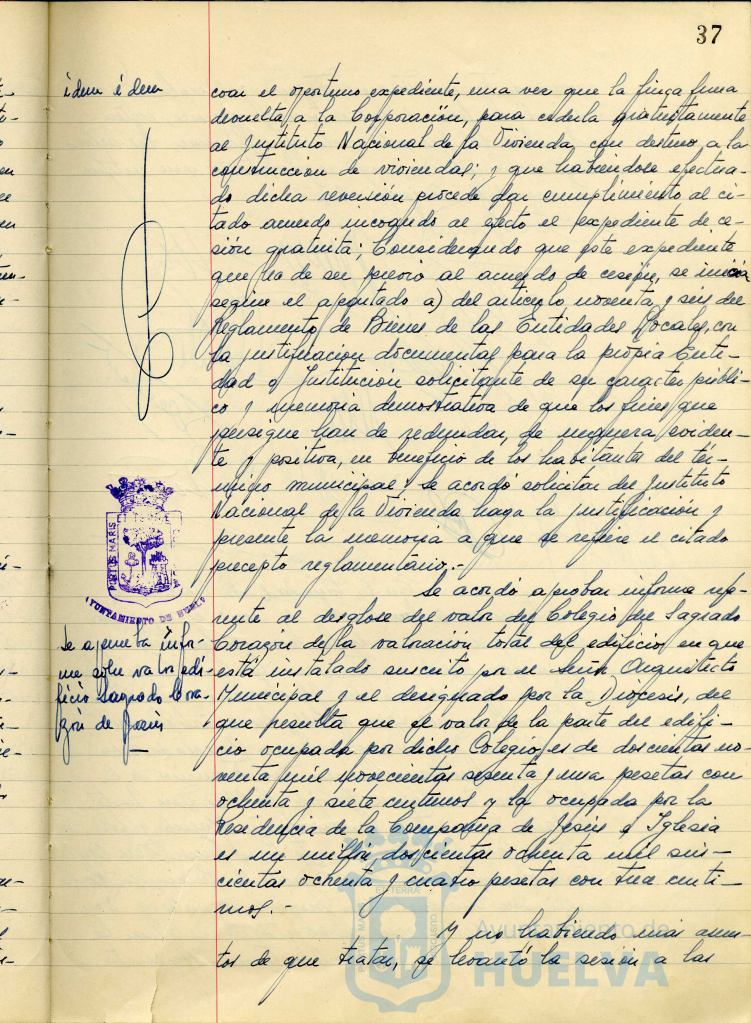 37
idem idem
coar el oportuno expediente, una vez que la finca fuera
devuelta a la Corporación, para cederla gratuitamente
al Instituto Nacional de la Vivienda, con destino a la
construcción de viviendas; y que habiéndose efectua-
do dicha reversión procede dar cumplimiento al ci-
tado acuerdo incoando al efecto el expediente de ce-
sión gratuita; Considerando que este expediente
que ha de ser previo al acuerdo de cesión, se inicia
según el apartado a) del artículo noventa y seis del
Reglamento de Bienes de las Entidades Locales, con
la justificación documental para la propia Enti-
dad o Institución solicitante de su caracter públi-
co y memoria demostrativa de que los fines que
persigue han de redundar, de manera eviden-
te y positiva, en beneficio de los habitantes del tér-
mino municipal; se acordó solicitar del Instituto
Nacional de la Vivienda haga la justificación y
presente la memoria a que se refiere el citado
precepto reglamentario.-
PORTUS MARIS
AYUNTAMIENTO DE HUELVA
Se aprueba infor-
me sobre valor edi-
ficio Sagrado Cora-
zón de Jesús
Se acordó aprobar informe refe-
rente al desglose del valor del Colegio del Sagrado
Corazón de la valoración total del edificio en que
está instalado suscrito por el Señor Arquitecto
Municipal y el designado por la Diócesis, del
que resulta que el valor de la parte del edifi-
cio ocupada por dicho Colegio, es de doscientas no-
venta mil novecientas sesenta y una pesetas con
ochenta y siete centimos y la ocupada por la
Residencia de la Compañia de Jesús e Iglesia
es un millón doscientas ochenta mil seis-
cientas ochenta y cuatro pesetas con trece centi-
mos.-
Y no habiendo más asun-
tos de que tratar, se levantó la sesión a las
Ayuntamiento de
HUELVA